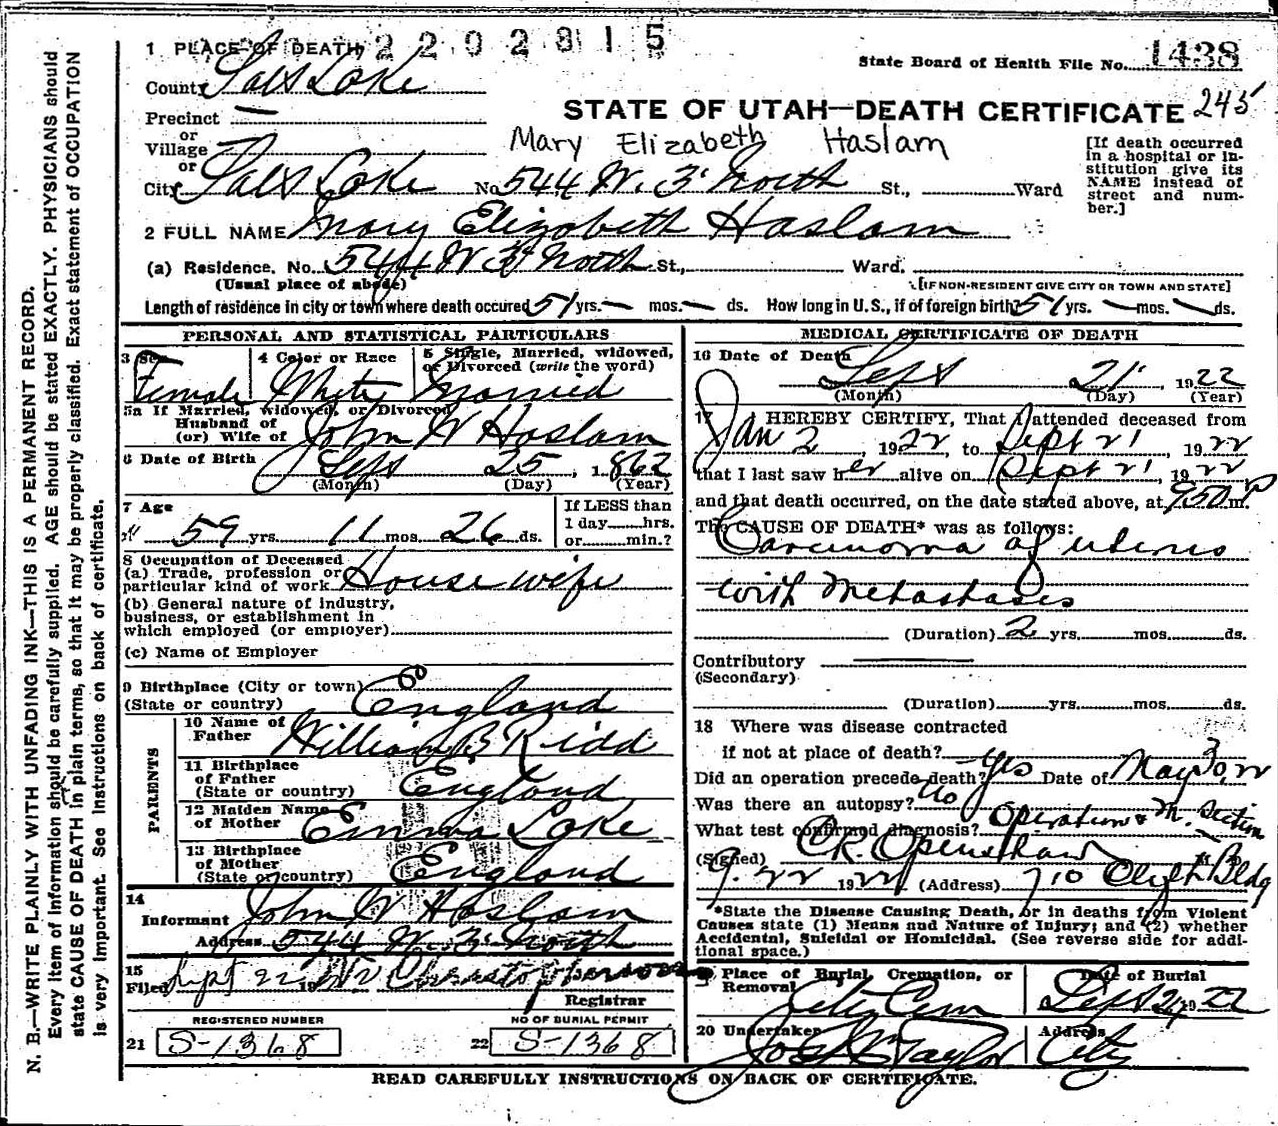 1 PLACE OF DEATH 2202815
State Board of Health File No. 1438
County Salt Lake
STATE OF UTAH—DEATH CERTIFICATE 245
Precinct —
or
Village
or
Mary Elizabeth Haslam
City Salt Lake No. 544 W. 3d North St., Ward
[If death occurred
in a hospital or in-
stitution give its
NAME instead of
street and num-
ber.]
2 FULL NAME Mary Elizabeth Haslam
(a) Residence. No. 544 W 3d North St., Ward.
(Usual place of abode) [IF NON-RESIDENT GIVE CITY OR TOWN AND STATE]
Length of residence in city or town where death occured 51 yrs. — mos. — ds. How long in U.S., if of foreign birth? 51 yrs. — mos. — ds.
PERSONAL AND STATISTICAL PARTICULARS
3 Sex
Female
4 Color or Race
White
5 Single, Married, widowed,
or Divorced (write the word)
Married
5a If Married, widowed, or Divorced
Husband of
(or) Wife of John W Haslam
6 Date of Birth Sept 25, 1862
(Month) (Day) (Year)
7 Age
59 yrs. 11 mos. 26 ds.
If LESS than
1 day......hrs.
or......min.?
8 Occupation of Deceased
(a) Trade, profession or
particular kind of work House wife
(b) General nature of industry,
business, or establishment in
which employed (or employer)
(c) Name of Employer
9 Birthplace (City or town)
(State or country) England
PARENTS
10 Name of
Father William B Kidd
11 Birthplace
of Father
(State or country) England
12 Maiden Name
of Mother Emma Lake
13 Birthplace
of Mother
(State or country) England
14
Informant John W Haslam
Address 544 W. 3d North
15
Filed Sept 22 19
Registrar
REGISTERED NUMBER
21 S-1368
NO OF BURIAL PERMIT
22 S-1368
MEDICAL CERTIFICATE OF DEATH
16 Date of Death Sept 21, 1922
(Month) (Day) (Year)
17 I HEREBY CERTIFY, That I attended deceased from
Jan 2, 1922, to Sept 21, 1922
that I last saw her alive on Sept 21, 1922
and that death occurred, on the date stated above, at 950 P m.
The CAUSE OF DEATH* was as follows:
Carcinoma of uterus
with Metastases
(Duration) 2 yrs. mos. ds.
Contributory —
(Secondary)
(Duration) yrs. mos. ds.
18 Where was disease contracted
if not at place of death?
Did an operation precede death? Yes Date of May 30, 22
Was there an autopsy? No
What test confirmed diagnosis? Operation & M. Section
(Signed) C.R. Openshaw
9-22 1922 (Address) 710 Bldg
*State the Disease Causing Death, or in deaths from Violent
Causes state (1) Means and Nature of Injury; and (2) whether
Accidental, Suicidal or Homicidal. (See reverse side for addi-
tional space.)
Place of Burial, Cremation, or
Removal City Cem
Date of Burial
Sept 24 1922
20 Undertaker
Jos Wm Taylor
Address
City
READ CAREFULLY INSTRUCTIONS ON BACK OF CERTIFICATE.
N. B.—WRITE PLAINLY WITH UNFADING INK—THIS IS A PERMANENT RECORD.
Every item of information should be carefully supplied. AGE should be stated EXACTLY. PHYSICIANS should
state CAUSE OF DEATH in plain terms, so that it may be properly classified. Exact statement of OCCUPATION
is very important. See instructions on back of certificate.